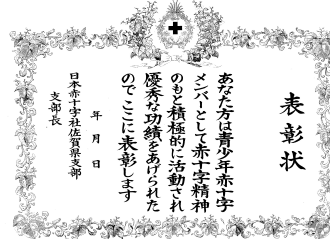 表彰状
あなた方は青少年赤十字
メンバーとして赤十字精神
のもと積極的に活動され
優秀な功績をあげられた
のでここに表彰します
年 月 日
日本赤十字社佐賀県支部
支部長